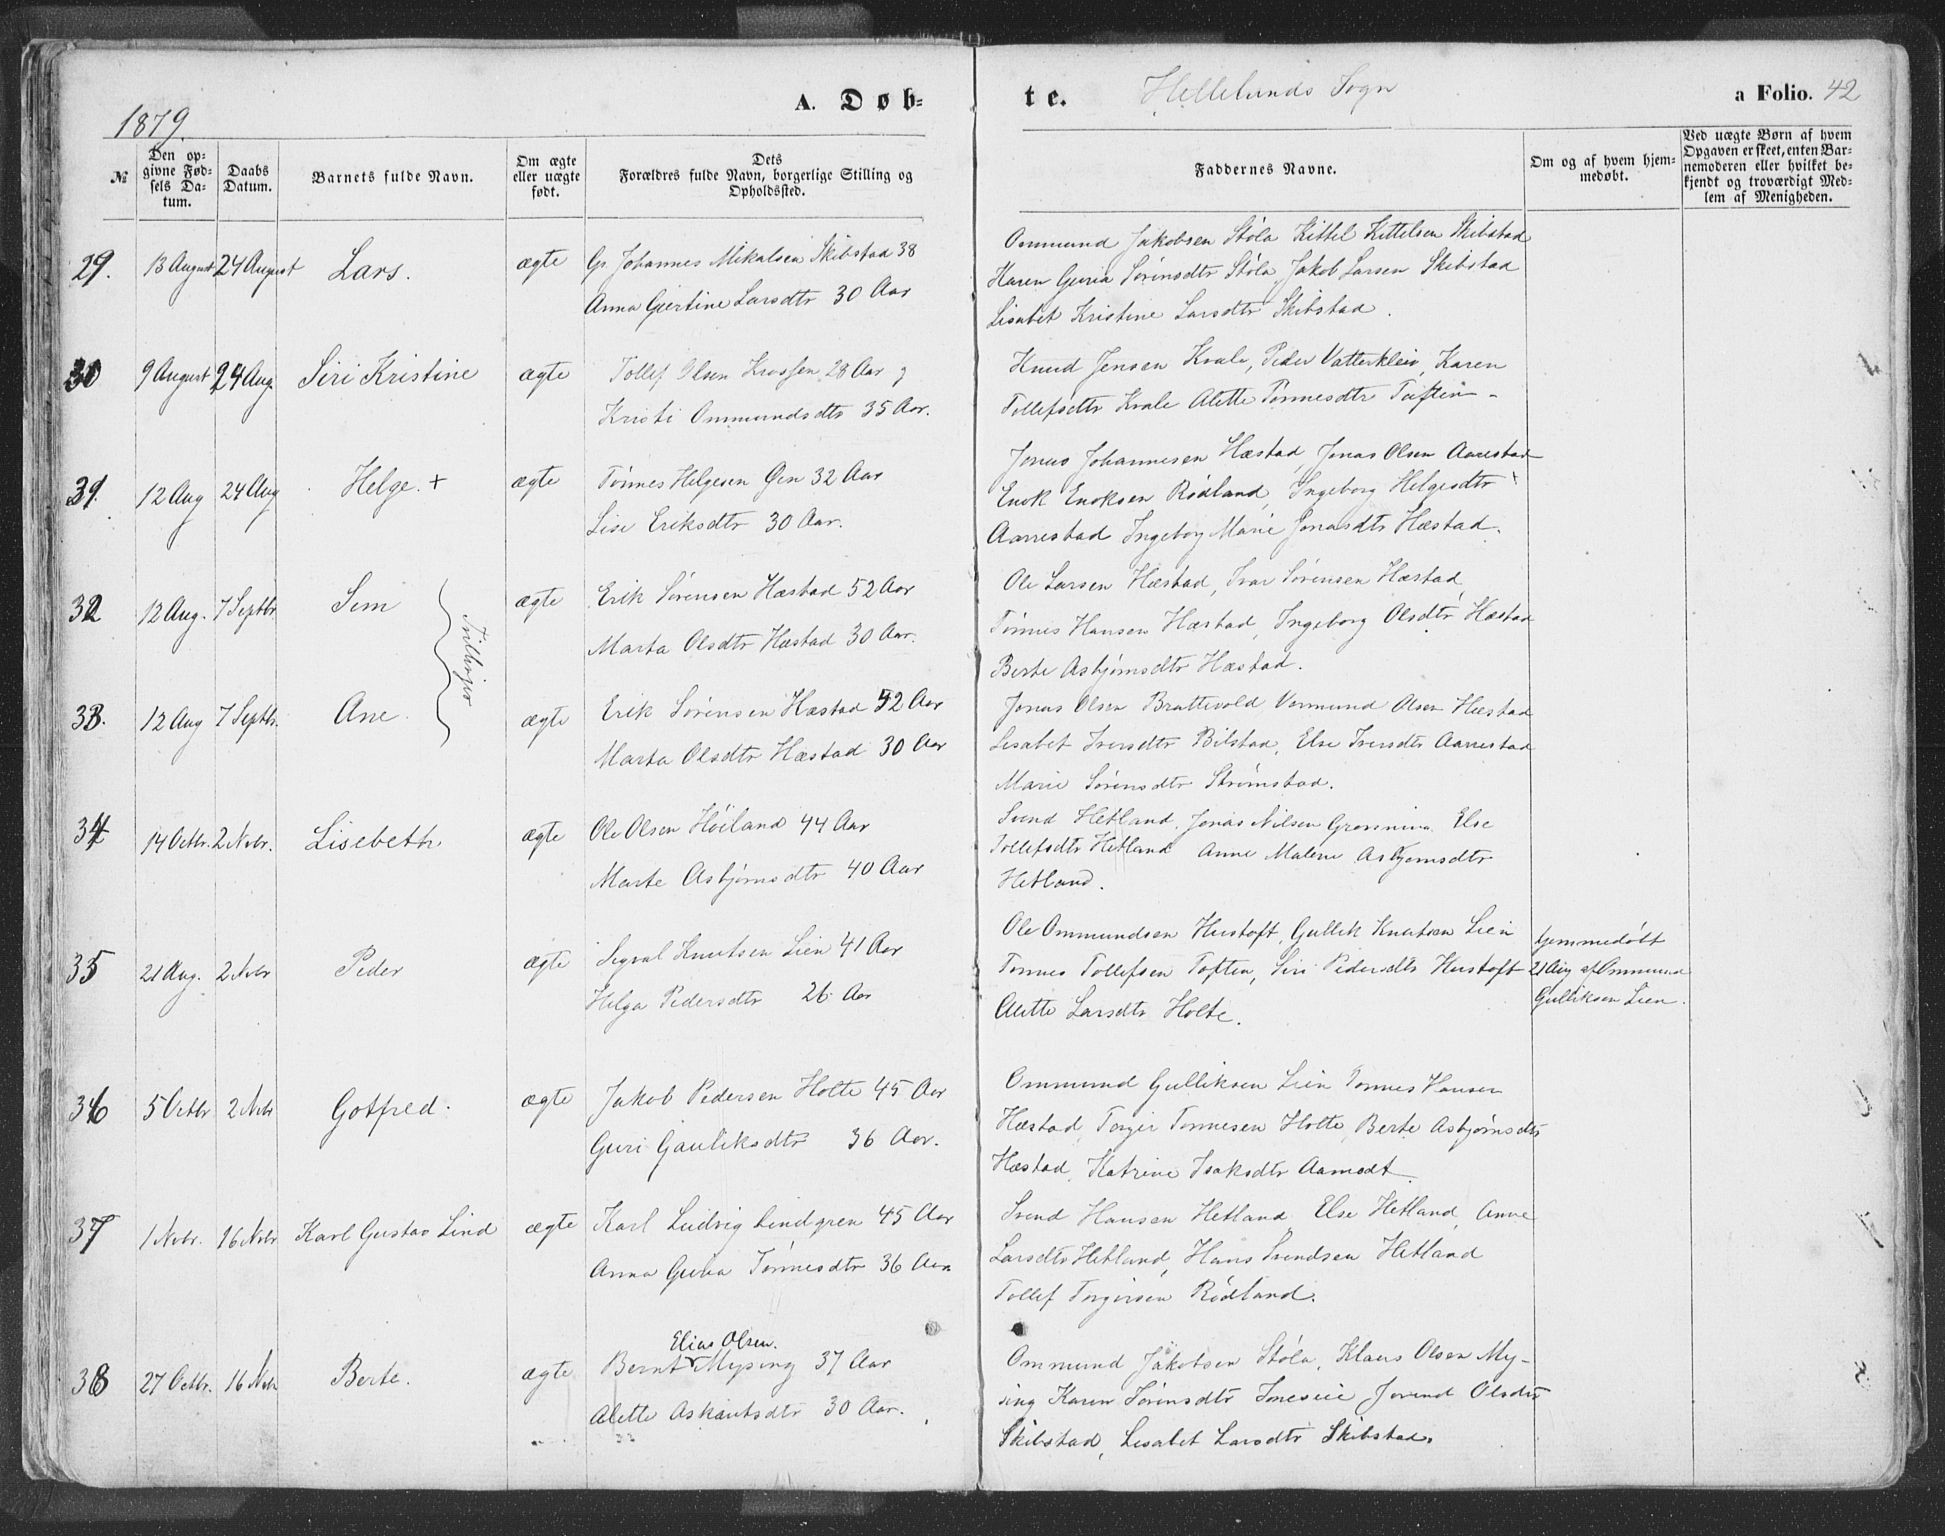 1879.
A. Døb-
te.
Hellelands Sogn
a Folio. 42
№
Den op-
givne Fød-
sels Da-
tum.
Daabs
Datum.
Barnets fulde Navn.
Om ægte
eller uægte
født.
Dets
Forældres fulde Navn, borgerlige Stilling og
Opholdssted.
Faddernes Navne.
Om og af hvem hjem-
medøbt.
Ved uægte Børn af hvem
Opgaven er skeet, enten Bar-
nemoderen eller hvilket be-
kjendt og troværdigt Med-
lem af Menigheden.
29. 13 August 24 August Lars. ægte Gr. Johannes Mikalsen Skibstad 38
Anna Gjertine Larsdtr 30 Aar
Ommund Jakobsen Støla Kittel Kittelsen Skibstad
Karen Guria Sørensdtr Støla, Jakob Larsen Skibstad
Lisabet Kristine Larsdtr Skibstad.
30 9 August 24 Aug. Siri Kristine ægte Tollef Olsen Krossen 28 Aar og
Kristi Ommundsdtr 35 Aar.
Knud Jensen Kvale, Peder Vatterkleiv, Karen
Tollefsdtr Kvale Alette Tønnesdtr Tuften -
31. 12 Aug 24 Aug Helge. + ægte Tønnes Helgesen Øen 32 Aar
Lise Eriksdtr 30 Aar.
Jonas Johannesen Hæstad, Jonas Olsen Aarrestad
Enok Enoksen Rødland, Ingeborg Helgesdtr
Aarrestad Ingeborg Marie Jonasdtr Hæstad.
32 12 Aug. 7 Septbr Sem ægte Erik Sørensen Hæstad 52 Aar
Marta Olsdtr Hæstad 30 Aar.
Tvillinger
Ole Larsen Hæstad, Ivar Sørensen Hæstad,
Tønnes Hansen Hæstad, Ingeborg Olsdtr Hæstad
Berte Asbjørnsdtr Hæstad.
33. 12 Aug 7 Septbr. Ane. ægte Erik Sørensen Hæstad 52 Aar
Marta Olsdtr Hæstad 30 Aar
Jonas Olsen Brattevold Vermund Olsen Hæstad
Lisabet Iversdtr Bilstad, Else Iversdtr Aarrestad
Marie Sørensdtr Strømstad.
34 14 Octbr. 2 Novbr. Lisebeth ægte Ole Olsen Høiland 44 Aar
Marte Asbjørnsdtr 40 Aar
Svend Hetland, Jonas Nilsen Grønning Else
Tollefsdtr Hetland Anne Malene Asbjørnsdtr
Hetland.
35 21 Aug. 2 Nvbr Peder ægte Sigval Knutsen Lien 41 Aar
Helga Pedersdtr 26 Aar
Ole Ommundsen Hustoft, Gullik Knutsen Lien
Tønnes Tollefsen Toften, Siri Pedersdtr Hustoft
Alette Larsdtr Holte.
hjemmedøbt
21 Aug af Ommund
Gulliksen Lien.
36 5 Octbr 2 Nvbr Gotfred. ægte Jakob Pedersen Holte 45 Aar
Guri Gauliksdtr 36 Aar.
Ommund Gulliksen Lien Tønnes Hansen
Hæstad, Torger Tønnesen Holte, Berte Asbjørnsdtr
Hæstad, Katrine Isaksdtr Aamodt
37 1 Nvbr. 16 Nvbr Karl Gustav Lind ægte Karl Ludvig Lindgren 45 Aar
Anna Guria Tønnesdtr 36 Aar
Svend Hansen Hetland Else Hetland, Anne
Larsdtr Hetland, Hans Svendsen Hetland
Tollef Torgersen Rødland.
38 27 Octbr. 16 Nvbr Berte. ægte Bernt Elias Olsen. Mysing 37 Aar
Alette Askautsdtr 30 Aar.
Ommund Jakobsen Støla, Klaus Olsen My-
sing Karen Sørensdtr Joneseie Jorend Olsdtr
Skibstad, Lisabet Larsdtr Skibstad.